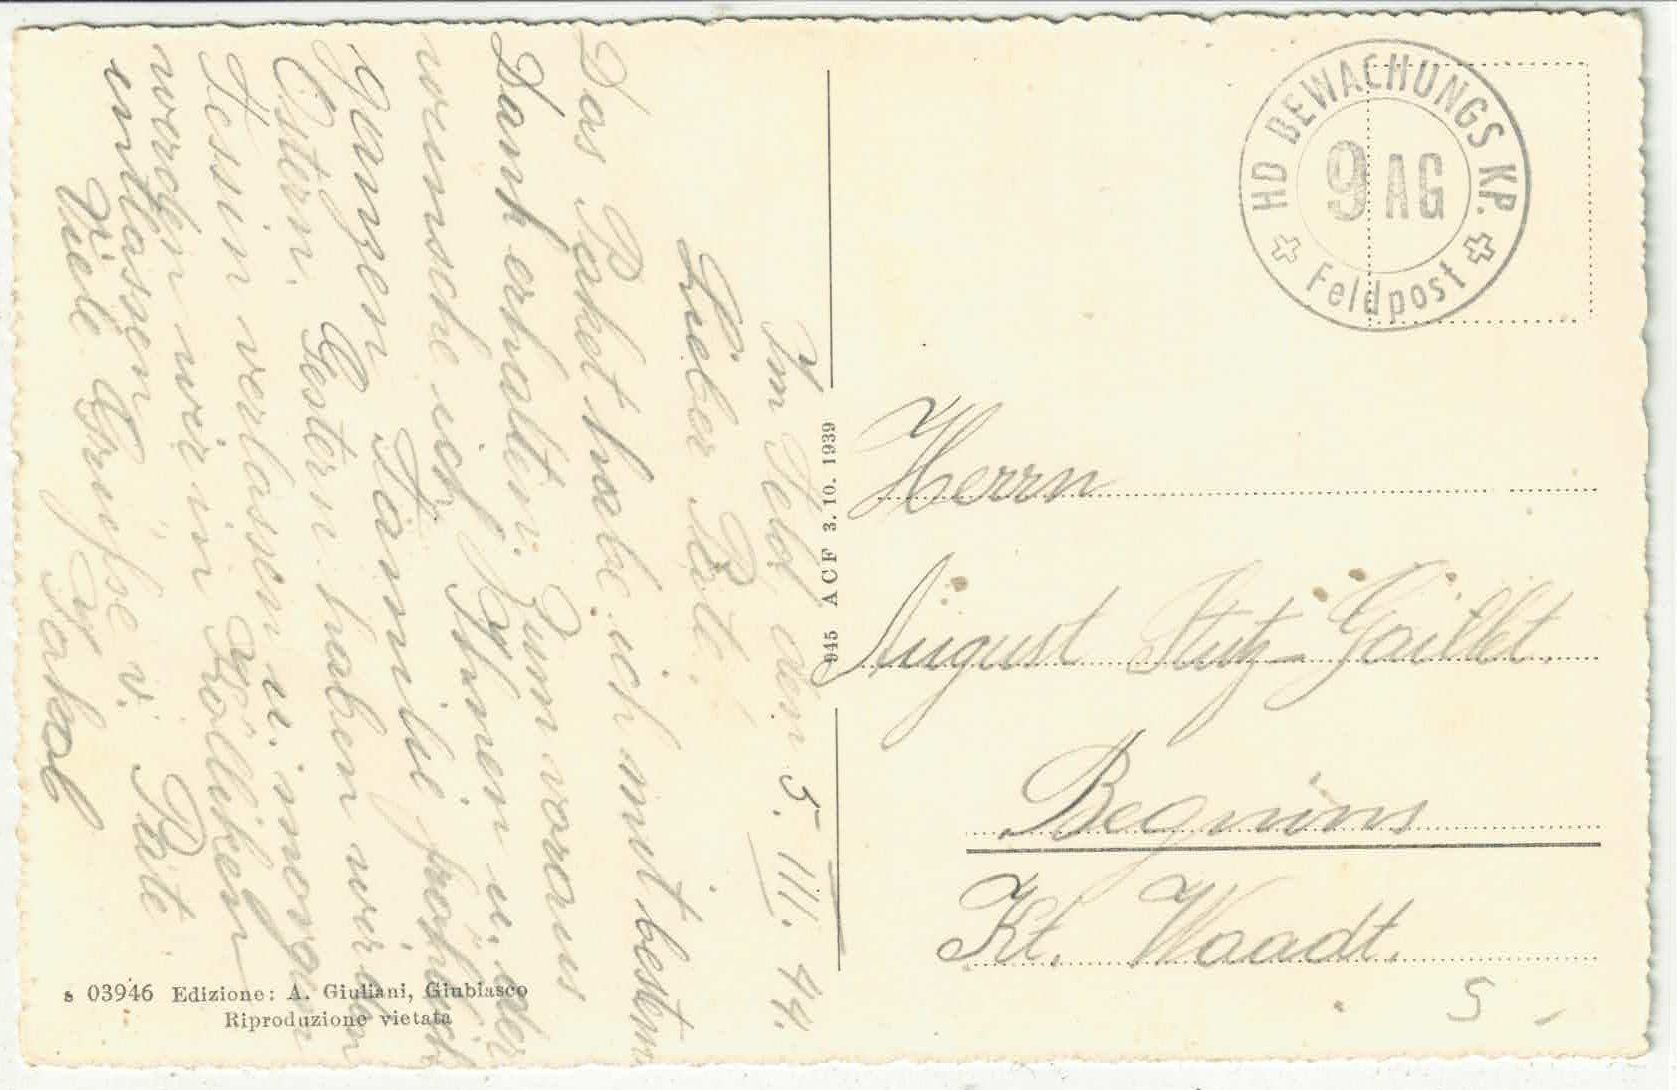 Im Feld, den 5. III. 44.
Lieber Päti!
Das Paket habe ich mit bestem
Dank erhalten. Zum voraus
wünsche ich Ihnen u. der
ganzen Familie fröhlich
Ostern. Gestern haben wir den
Tessin verlassen u. morgen
werden wir in Kölliken
entlassen
Viele Grüsse v. Päte
Jakob
HD BEWACHUNGS KP.
9 AG
Feldpost
945 ACF 3.10.1939
Herrn
August Stutz-Gaillet.
Begnins
Kt. Waadt.
5 -
s 03946 Edizione: A. Giuliani, Giubiasco
Riproduzione vietata